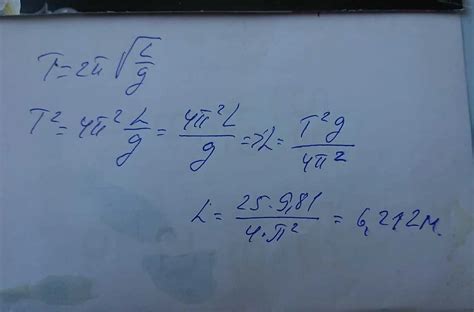 T=2π√(L/g)
T²=4π² L/g = 4π²L/g => L= T²g/4π²
L = 25·9,81/4·π² = 6,212м.